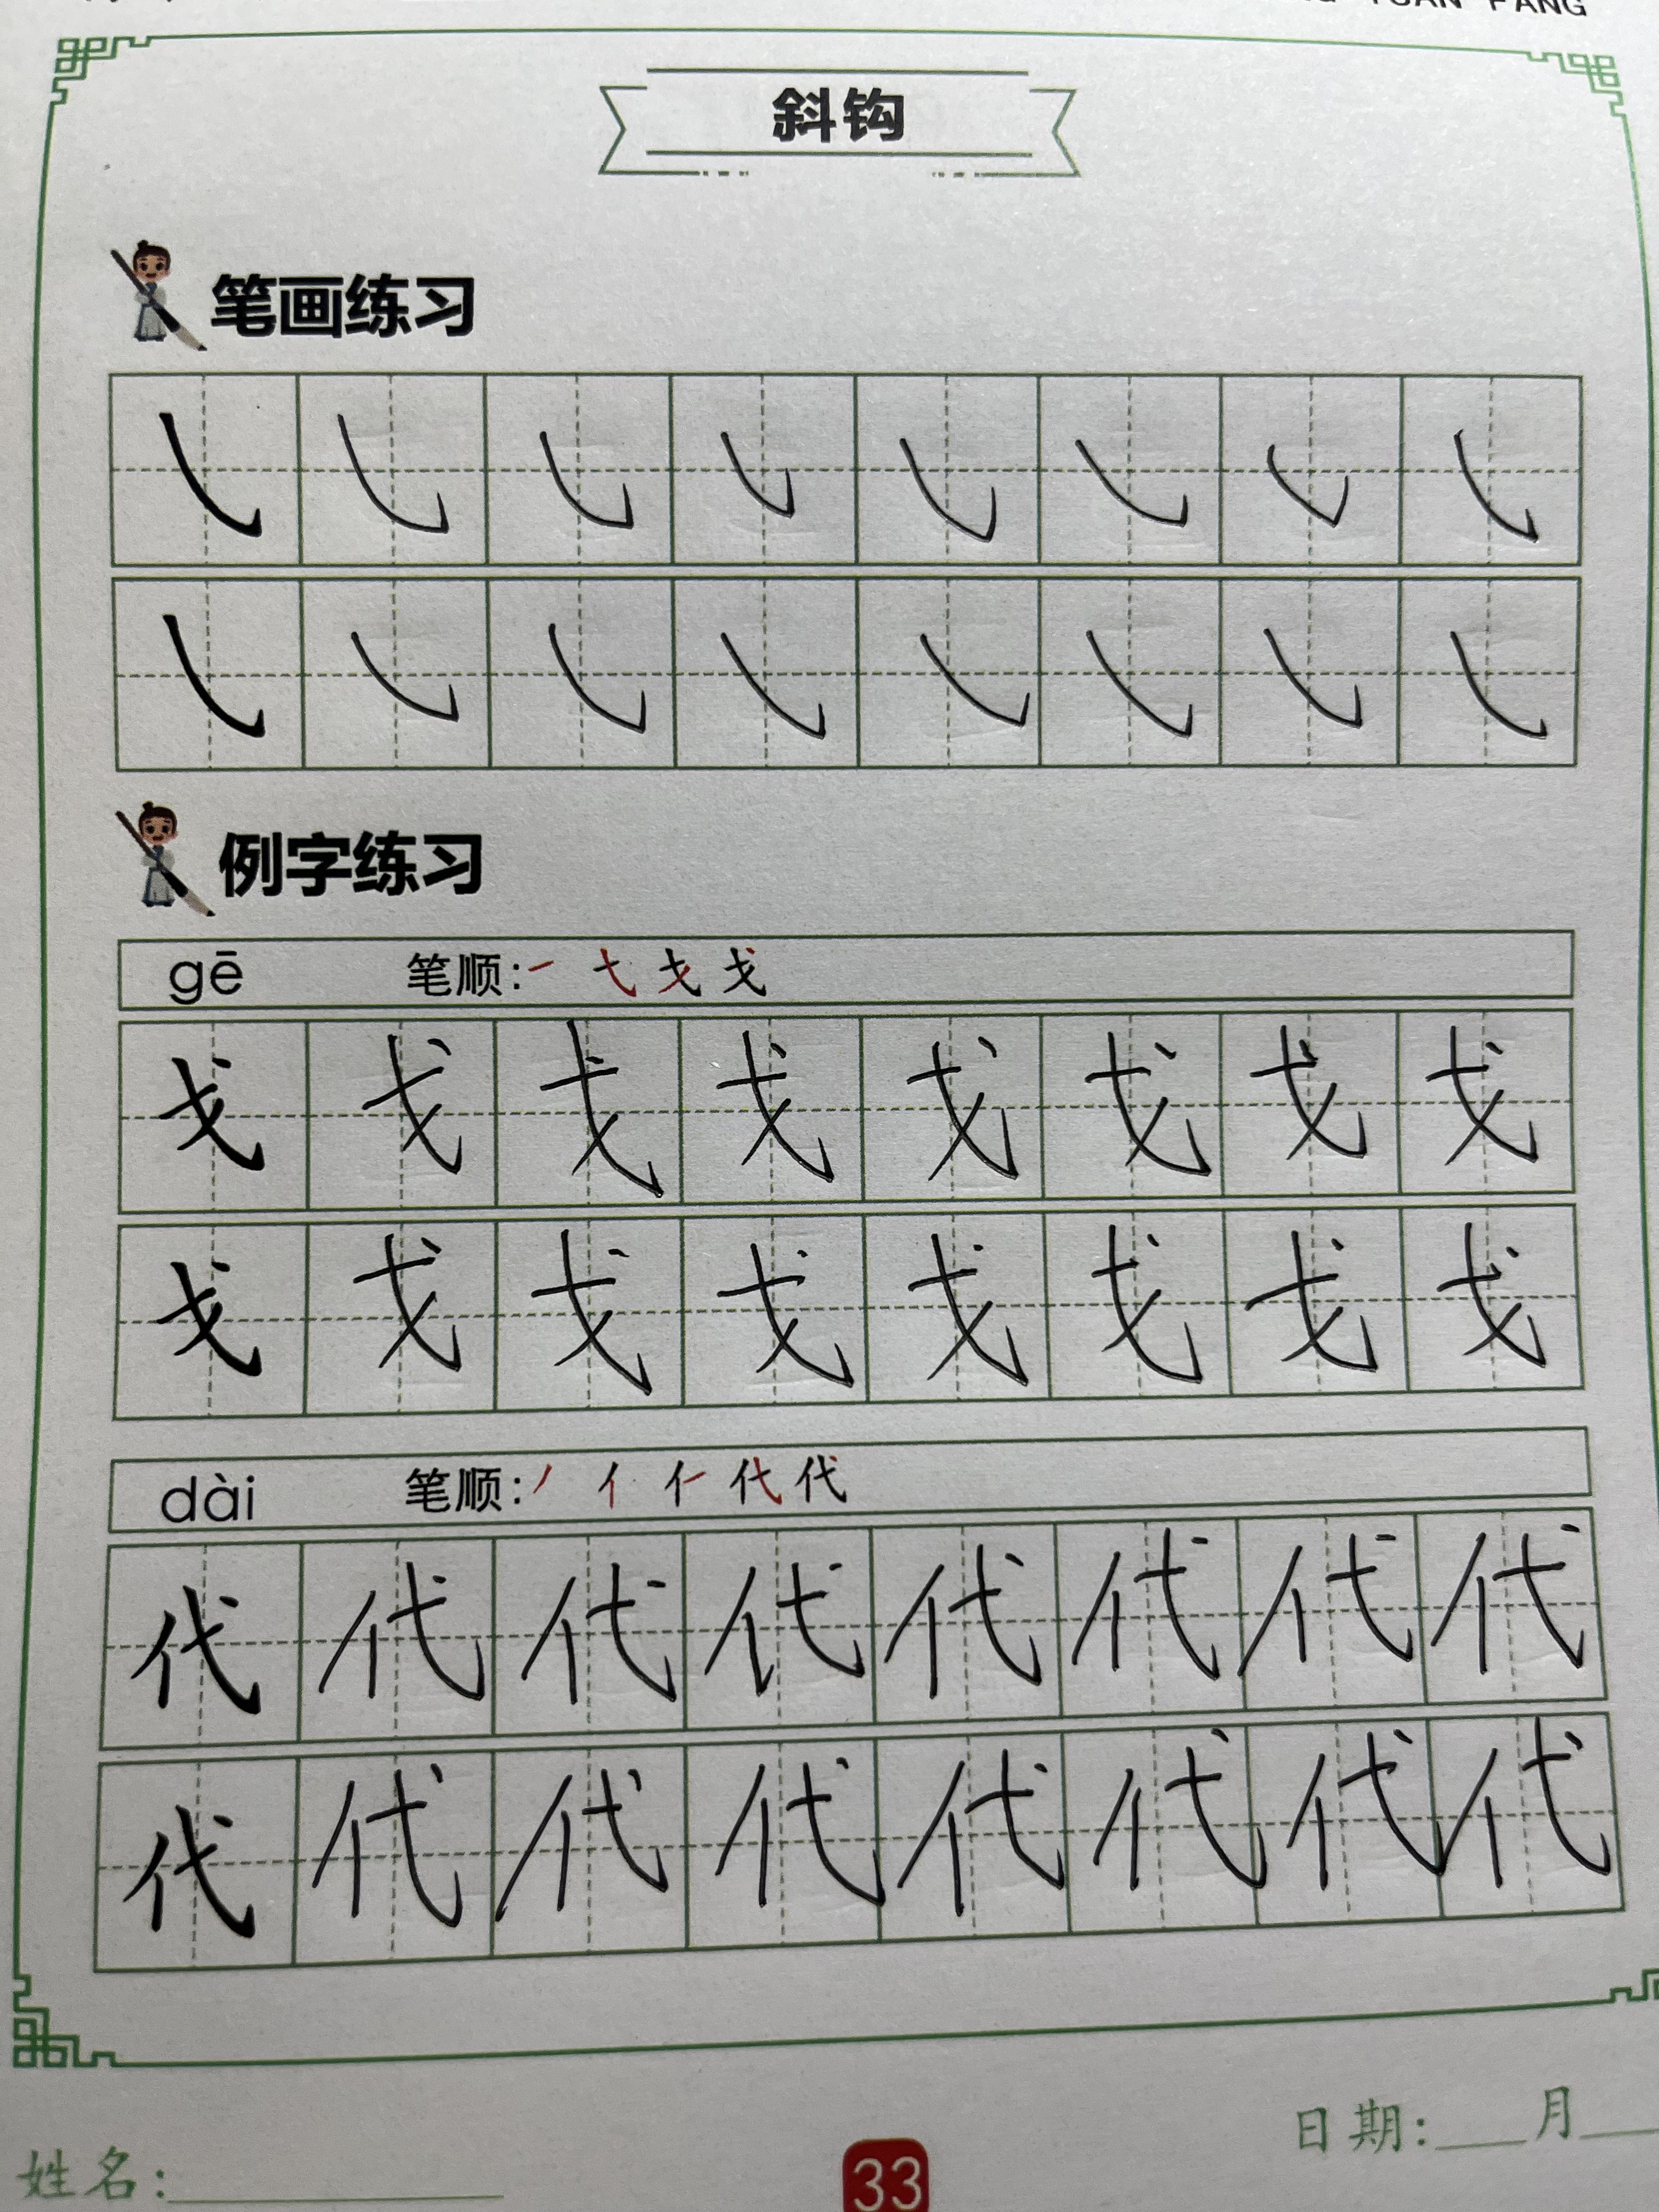 YUAN FANG
斜钩
笔画练习
㇂ ㇂ ㇂ ㇂ ㇂ ㇂ ㇂ ㇂
㇂ ㇂ ㇂ ㇂ ㇂ ㇂ ㇂ ㇂
例字练习
gē 笔顺:一 弋 戈 戈
戈 戈 戈 戈 戈 戈 戈 戈
戈 戈 戈 戈 戈 戈 戈 戈
dài 笔顺:丿 亻 仁 代 代
代 代 代 代 代 代 代 代
代 代 代 代 代 代 代 代
日期:___月___
姓名:__________
33